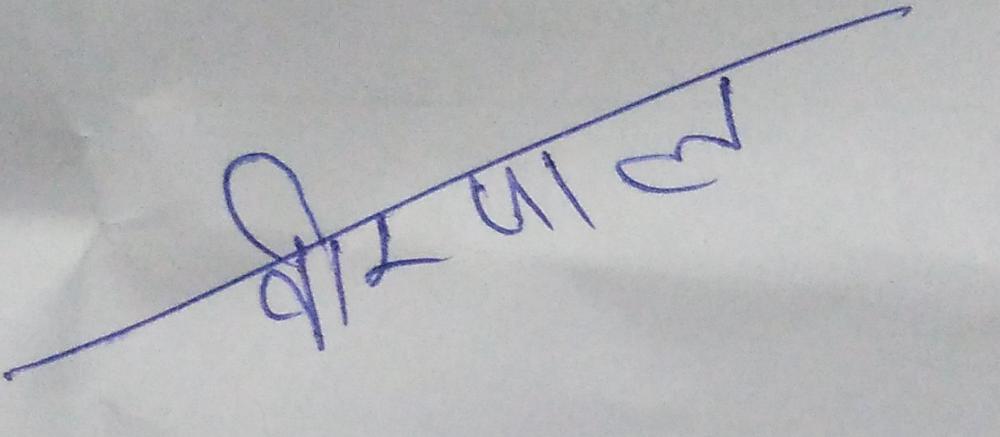 वीरपाल